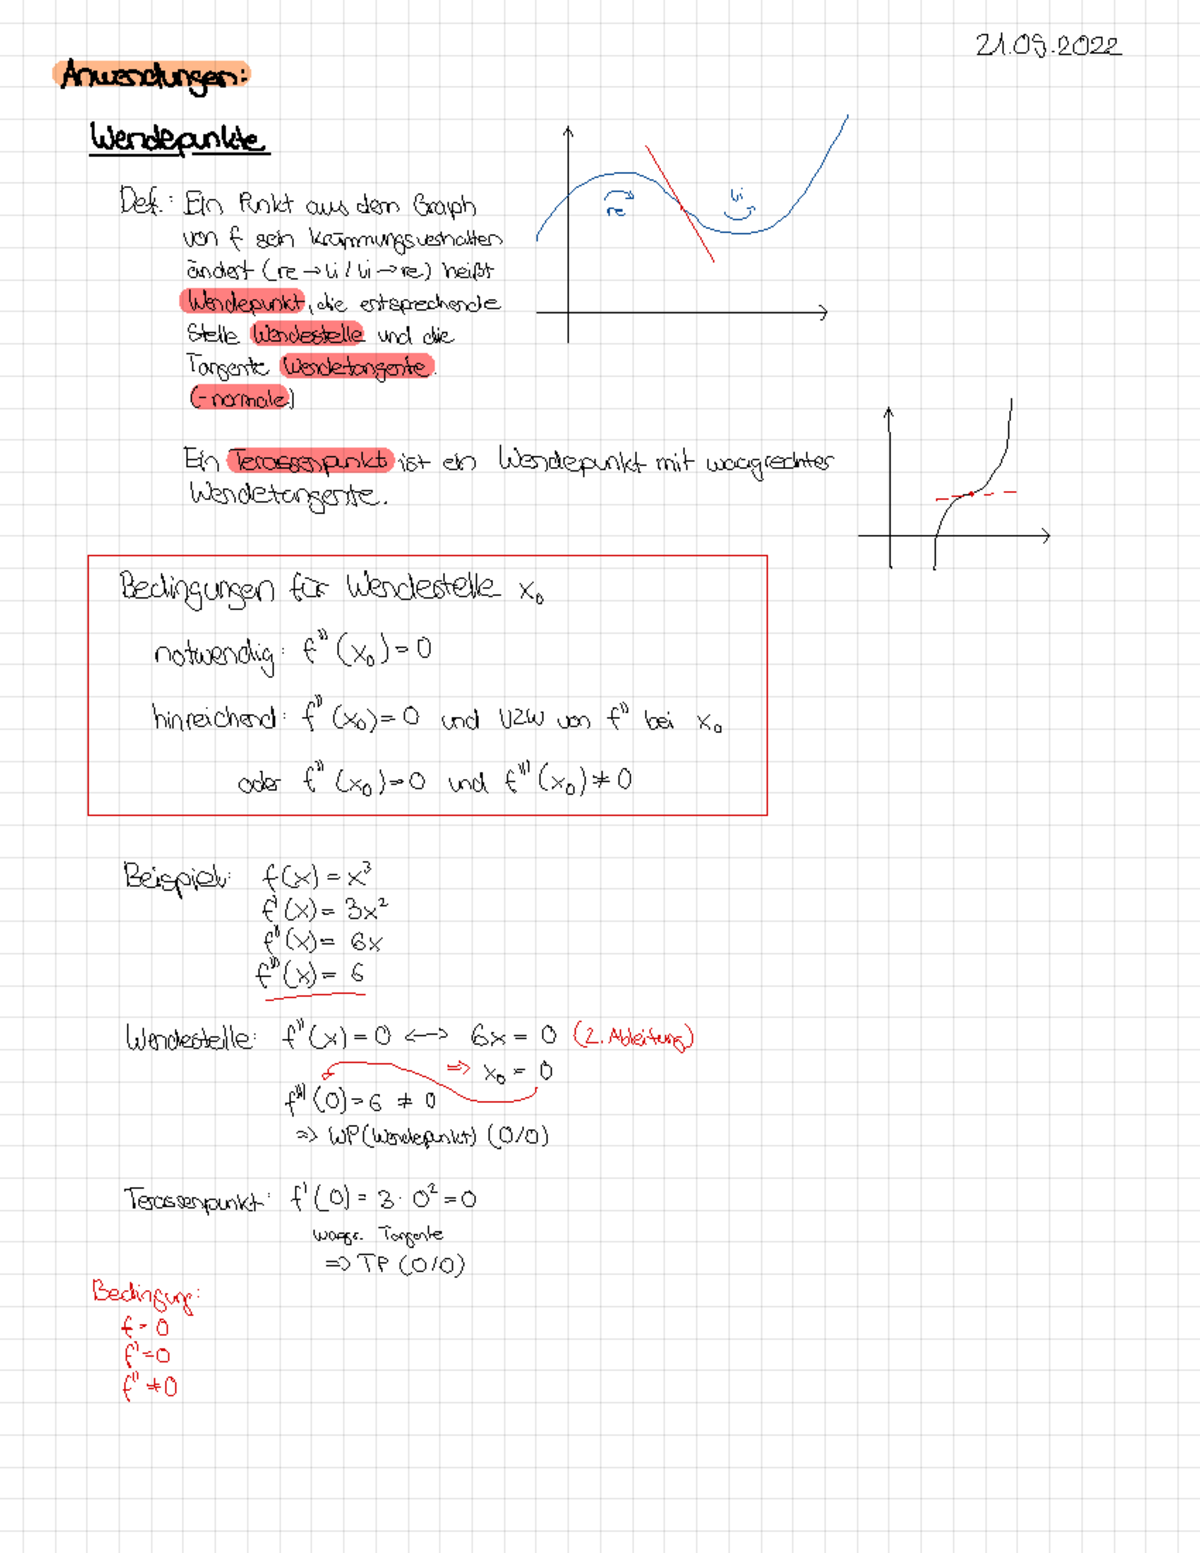 21.09.2022
Anwendungen:
Wendepunkte
Def.: Ein Punkt aus dem Graph
von f sein Krümmungsverhalten
ändert (re → li / li → re) heißt
Wendepunkt, die entsprechende
Stelle Wendestelle und die
Tangente Wendetangente.
(-normale)
re
li
Ein Terassenpunkt ist ein Wendepunkt mit waagrechter
Wendetangente.
Bedingungen für Wendestelle x₀
notwendig: f''(x₀) = 0
hinreichend: f''(x₀) = 0 und VZW von f'' bei x₀
oder f''(x₀) = 0 und f'''(x₀) ≠ 0
Beispiel: f(x) = x³
f'(x) = 3x²
f''(x) = 6x
f'''(x) = 6
Wendestelle: f''(x) = 0 <-> 6x = 0 (2. Ableitung)
=> x₀ = 0
f'''(0) = 6 ≠ 0
=> WP (Wendepunkt) (0/0)
Terassenpunkt: f'(0) = 3 · 0² = 0
waagr. Tangente
=> TP (0/0)
Bedingung:
f = 0
f' = 0
f'' ≠ 0